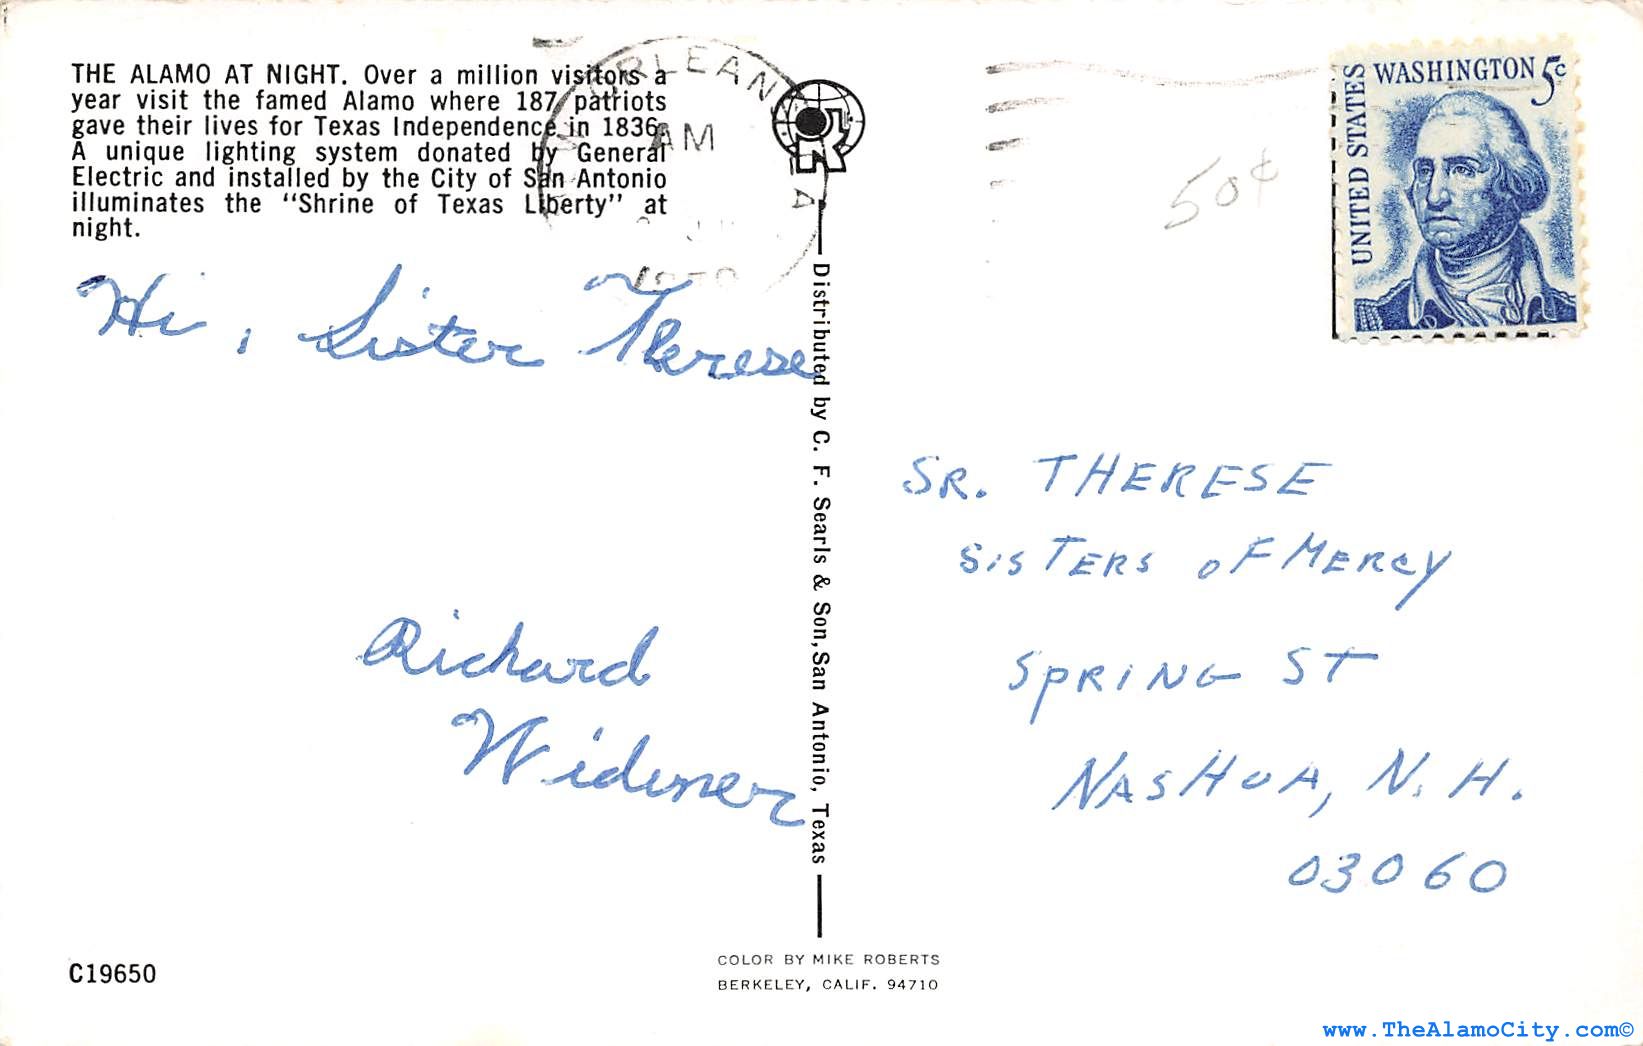 THE ALAMO AT NIGHT. Over a million visitors a
year visit the famed Alamo where 187 patriots
gave their lives for Texas Independence in 1836.
A unique lighting system donated by General
Electric and installed by the City of San Antonio
illuminates the “Shrine of Texas Liberty” at
night.
ORLEANS
AM
Hi, Sister Therese
Richard
Widener
C19650
Distributed by C. F. Searls & Son, San Antonio, Texas
COLOR BY MIKE ROBERTS
BERKELEY, CALIF. 94710
UNITED STATES
WASHINGTON 5c
50¢
SR. THERESE
SISTERS OF MERCY
SPRING ST
NASHUA, N.H.
03060
www.TheAlamoCity.com©